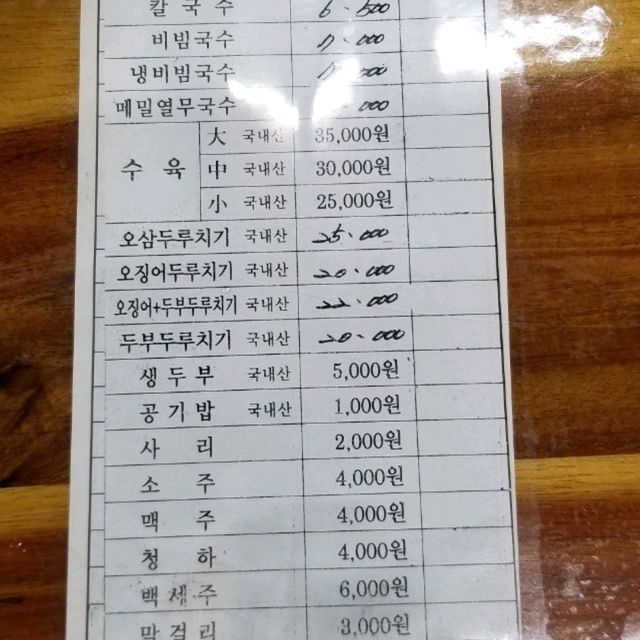 칼국수 6.500
비빔국수 7.000
냉비빔국수
메밀열무국수
수육 大 국내산 35,000원
中 국내산 30,000원
小 국내산 25,000원
오삼두루치기 국내산 25.000
오징어두루치기 국내산 20.000
오징어+두부두루치기 국내산 22.000
두부두루치기 국내산 20.000
생두부 국내산 5,000원
공기밥 국내산 1,000원
사리 2,000원
소주 4,000원
맥주 4,000원
청하 4,000원
백세주 6,000원
막걸리 3,000원